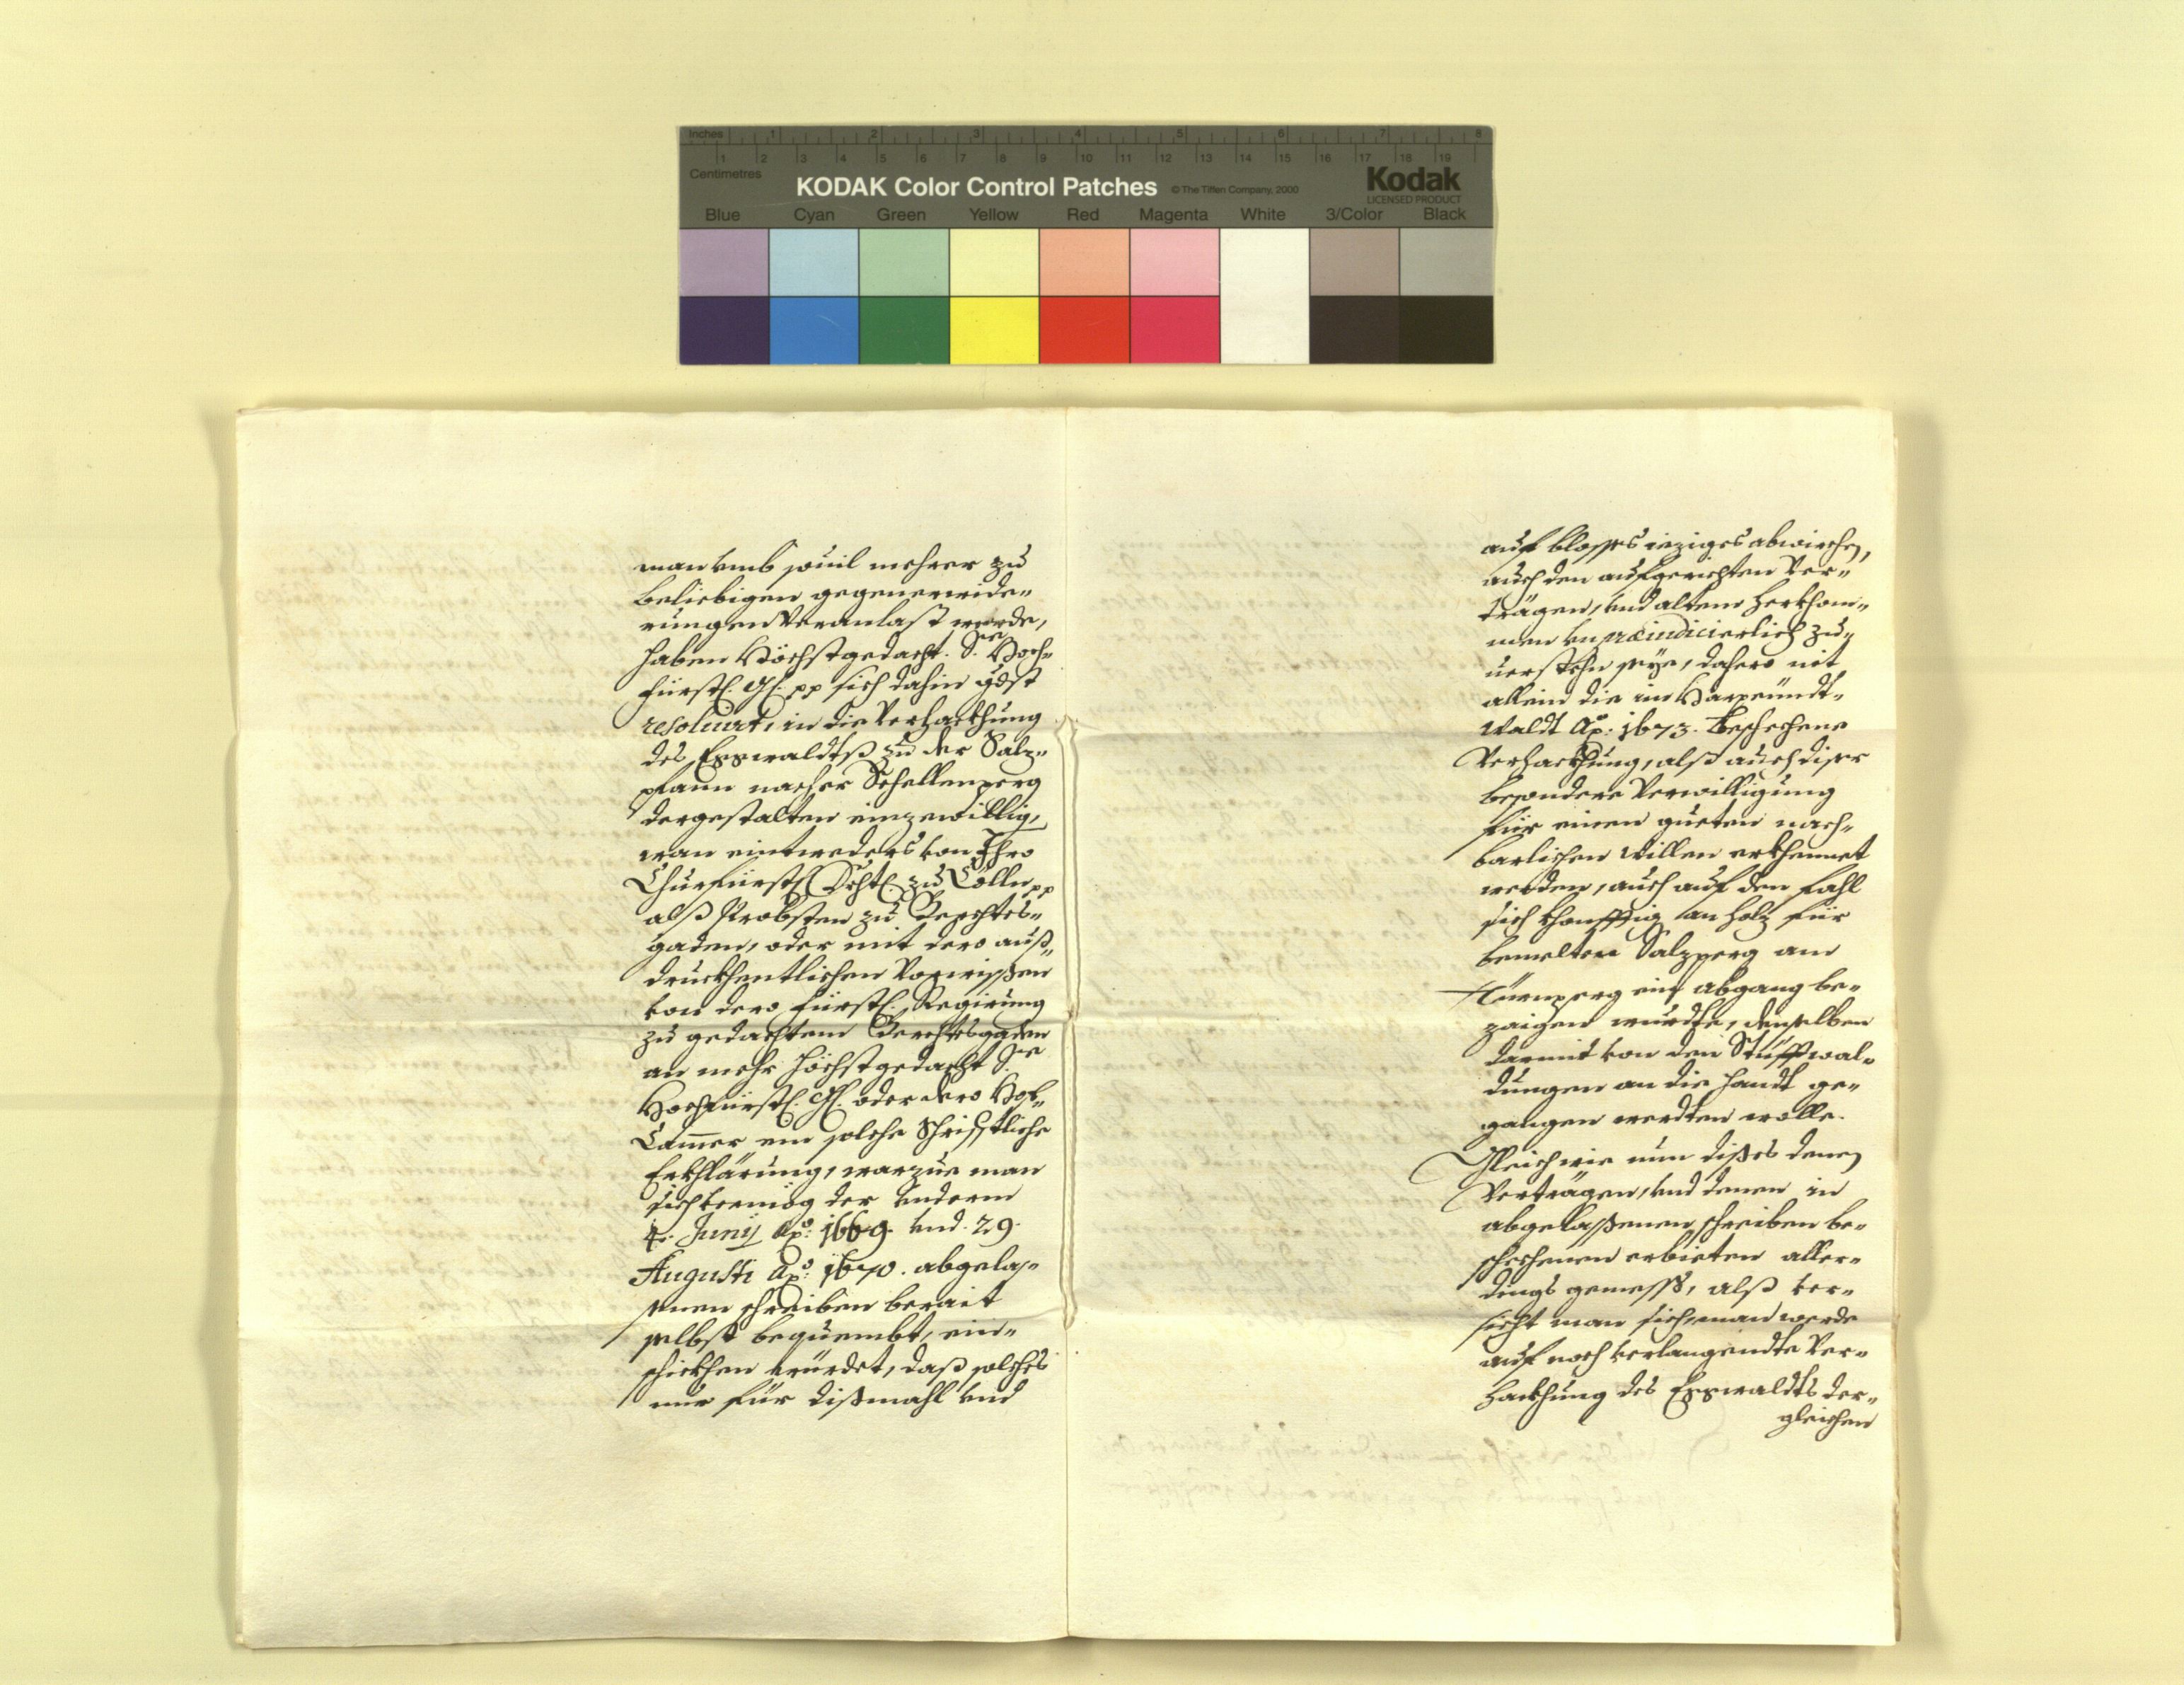 Inches 1 2 3 4 5 6 7 8
1 2 3 4 5 6 7 8 9 10 11 12 13 14 15 16 17 18 19
Centimetres
KODAK Color Control Patches © The Tiffen Company, 2000 Kodak
LICENSED PRODUCT
Blue Cyan Green Yellow Red Magenta White 3/Color Black
man vmb souil mehrer zu
beliebigen gegenerwide-
rungen Veranlast werde,
haben Höchstgedacht. Sr. Hoch-
fürstl. Gl. pp sich dahin gdst
resoluirt, in die Verhackhung
des Esswaldtß zu der Salz-
pfann nacher Schellenperg
dergestalten einzewillig,
wan eintweders von Ihro
Churfürstl. Dchtl. zu Cölln pp
alß Probsten zu Berchtes-
gaden, oder mit dero auß-
druckhentlichen Vorwissen
von dero fürstl. Regirung
zu gedachtem Berchtesgaden
an mehr höchstgedacht Sr.
Hochfürstl. Gl. oder dero Hof-
Camer ein solche Schrifftliche
Erkhlärung, warzue man
sich vermög der vnderm
4. Junij Ao: 1669. vnd. 29.
Augusti Ao: 1670. abgelas-
senen schreiben berait
selbst bequembt, ein-
schickhen würdet, daß solches
nur für dißmahl vnd
auf blosses ieziges abwichen,
auch den aufgerichten Ver-
trägen, vnd altem herkhom-
men vnpraeiudicierlich zu-
uerstehn seye, dahero nit
allein die im
Waldt Ao: 1673. beschechene
Verhackhung, alß auch diser
besondere Verwilligung
für einen gueten nach-
barlichen willen erkhennet
werden, auch auf den fahl
sich khonfftig an holz für
bemelten Salzperg am
Türnperg ein abgang be-
zaigen wurdte, demselben
darmit von den Stüfftwal-
dungen an die handt ge-
gangen werdten wolle.
Gleich wie nun dißes denen
Verträgen, vnd denen in
abgelaßenen schreiben be-
schechenen erbieten aller-
dings gemess, alß ver-
sicht man sich, man werde
auf noch verlangendte Ver-
hackhung des Esswaldts der-
gleichen